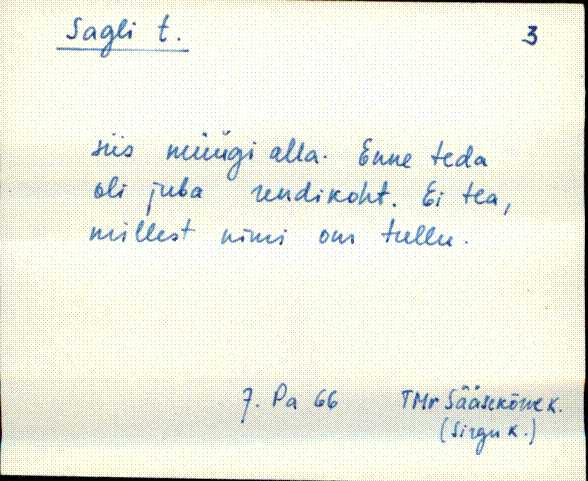 Sagli t.
3
siis müügi alla. Enne teda
oli juba rendikoht. Ei tea,
millest nimi om tullu.
7. Pa 66 TMr Sääsekõrve k.
(Sirgu k.)